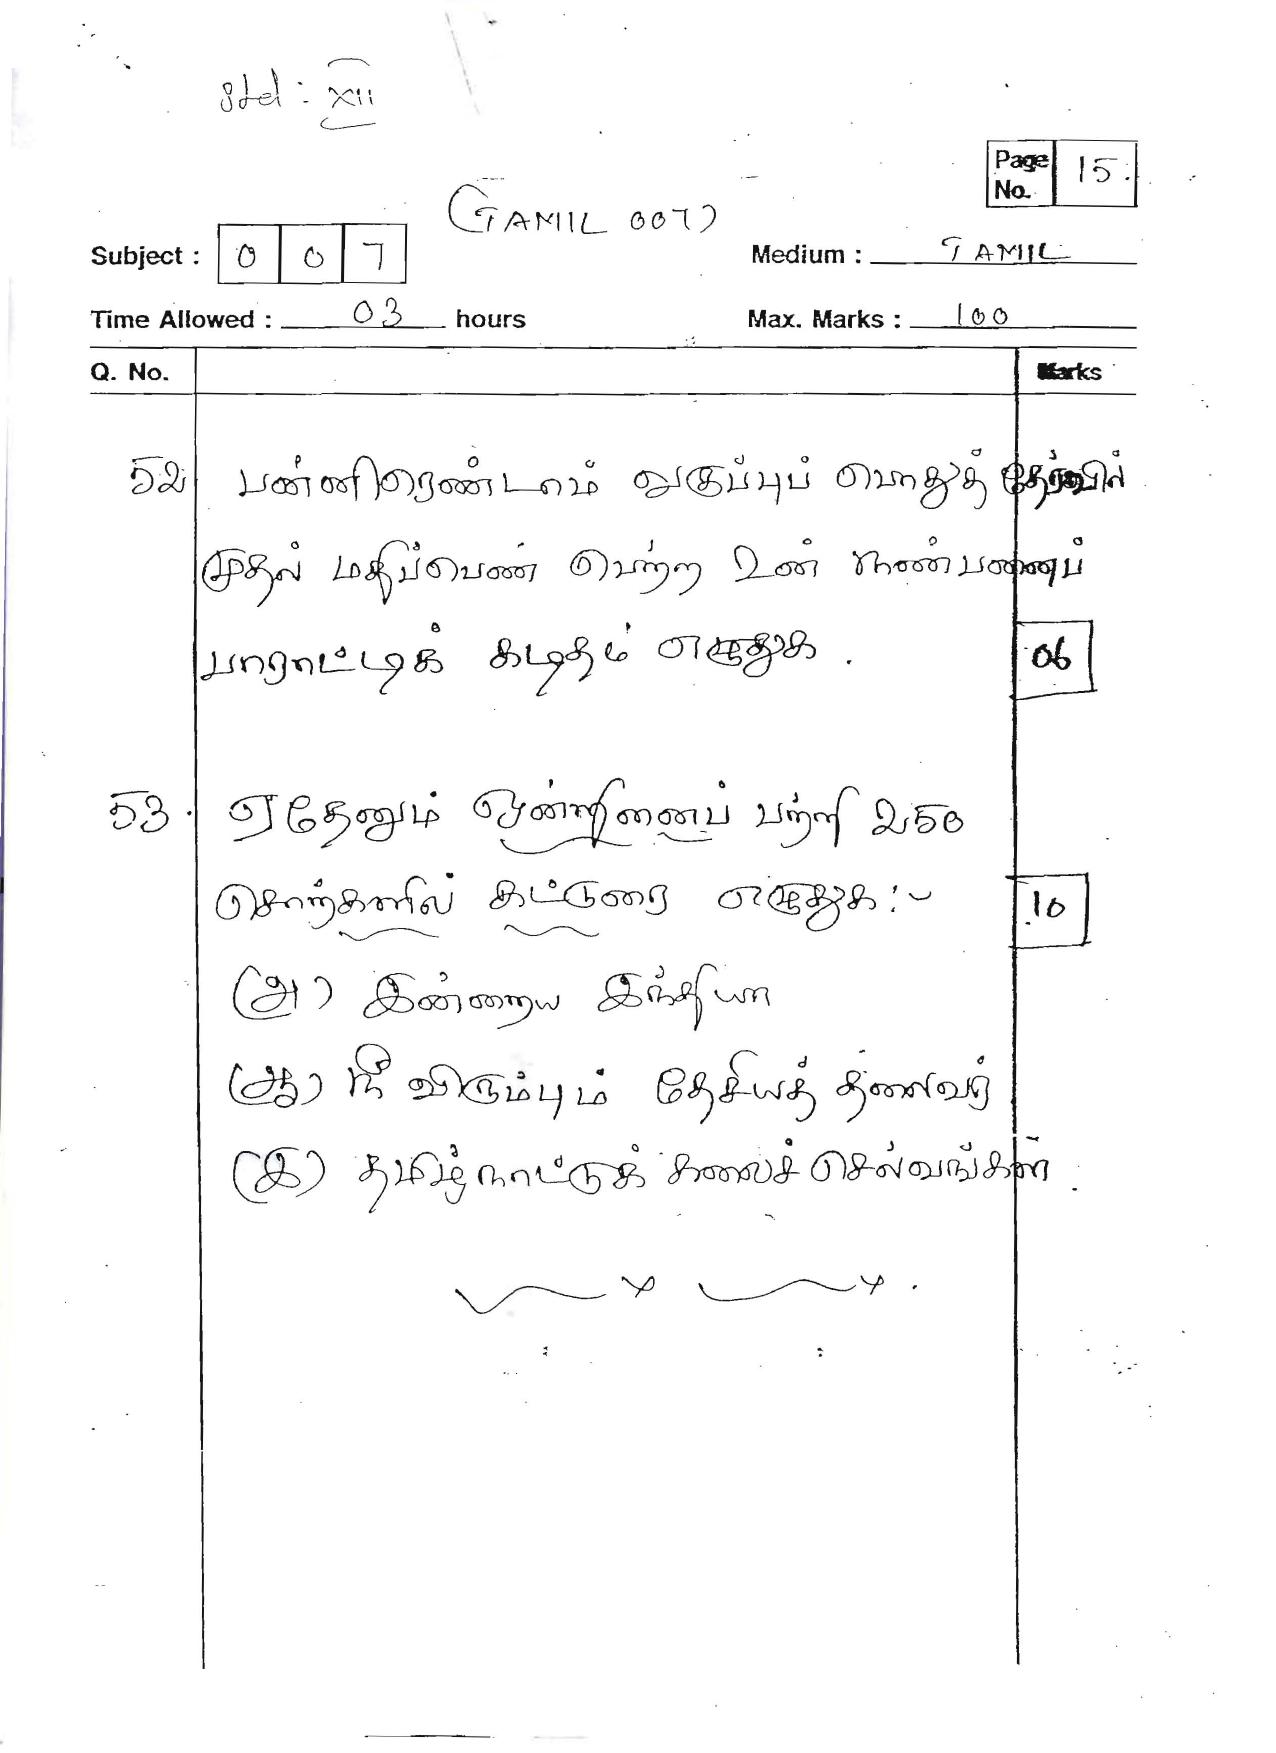 Std : XII
Page No. 15.
(TAMIL 007)
Subject : 0 0 7 Medium : TAMIL
Time Allowed : 03 hours Max. Marks : 100
Q. No. Marks
52 பன்னிரெண்டாம் வகுப்புப் பொதுத் தேர்வில்
முதல் மதிப்பெண் பெற்ற உன் நண்பனைப்
பாராட்டிக் கடிதம் எழுதுக . 06
53. ஏதேனும் ஒன்றினைப் பற்றி 250
சொற்களில் கட்டுரை எழுதுக :- 10
(அ) இன்றைய இந்தியா
(ஆ) நீ விரும்பும் தேசியத் தலைவர்
(இ) தமிழ்நாட்டுக் கலைச் செல்வங்கள் .